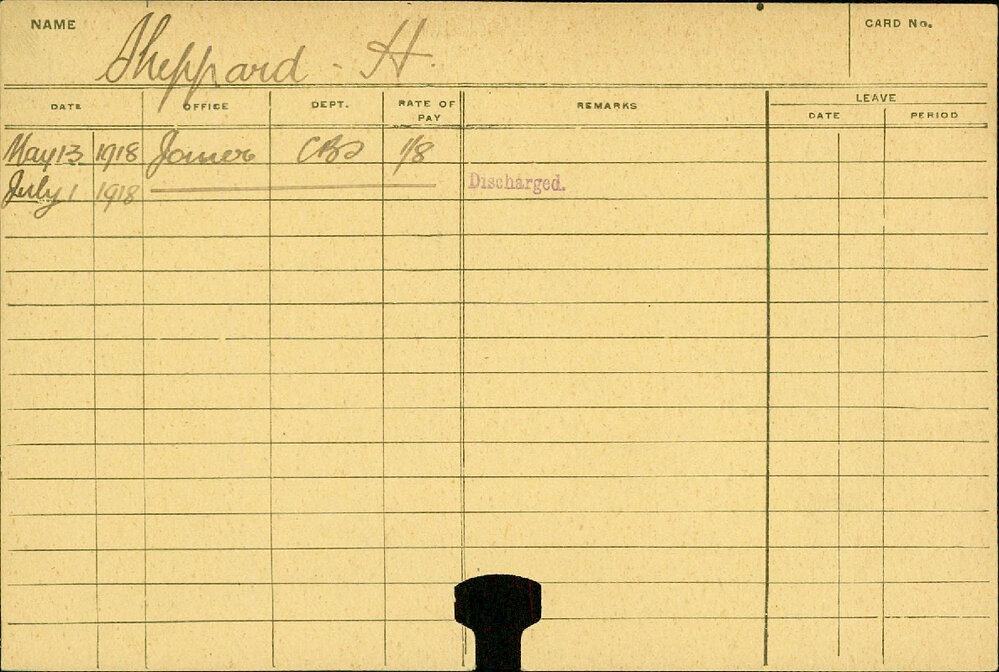 NAME
Sheppard - H.
CARD No.
DATE OFFICE DEPT. RATE OF PAY REMARKS LEAVE
DATE PERIOD
May 13 1918 Joiner CBS 1/8
July 1 1918 Discharged.